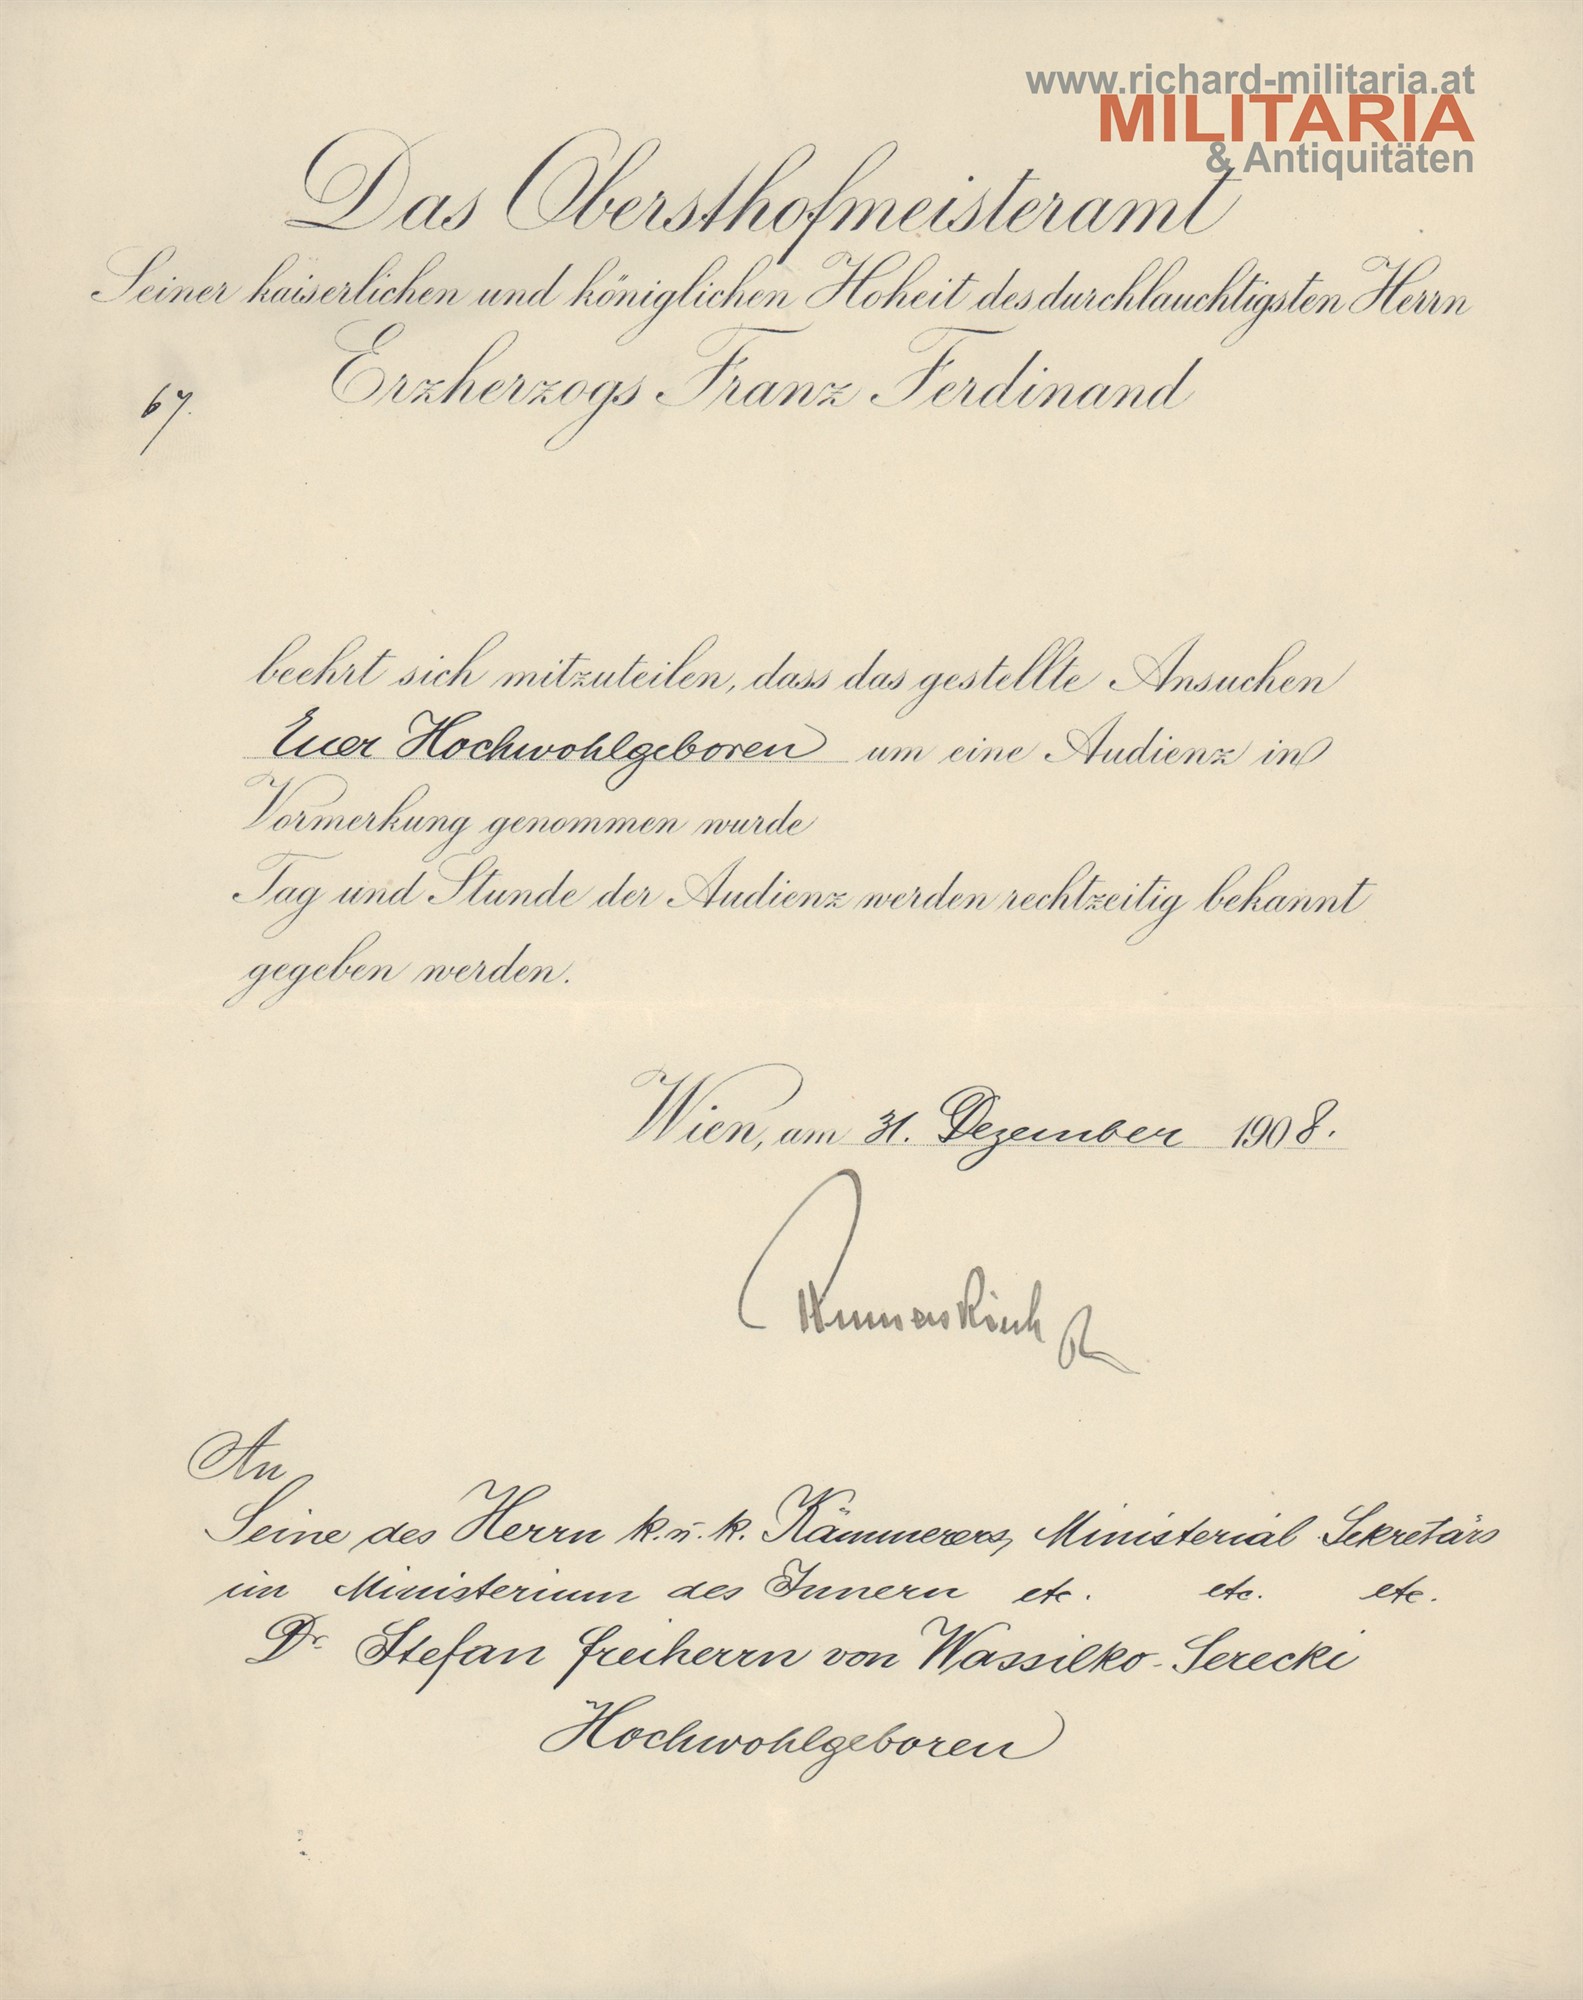 www.richard-militaria.at
MILITARIA
& Antiquitäten
Das Obersthofmeisteramt
Seiner kaiserlichen und königlichen Hoheit des durchlauchtigsten Herrn
Erzherzogs Franz Ferdinand
67.
beehrt sich mitzuteilen, dass das gestellte Ansuchen
Euer Hochwohlgeboren um eine Audienz in
Vormerkung genommen wurde
Tag und Stunde der Audienz werden rechtzeitig bekannt
gegeben werden.
Wien, am 31. Dezember 1908.
Rumerskirch
An
Seine des Herrn k. u. k. Kämmerers, Ministerial Sekretärs
im Ministerium des Innern etc. etc. etc.
Dr. Stefan Freiherrn von Wassilko-Serecki
Hochwohlgeboren